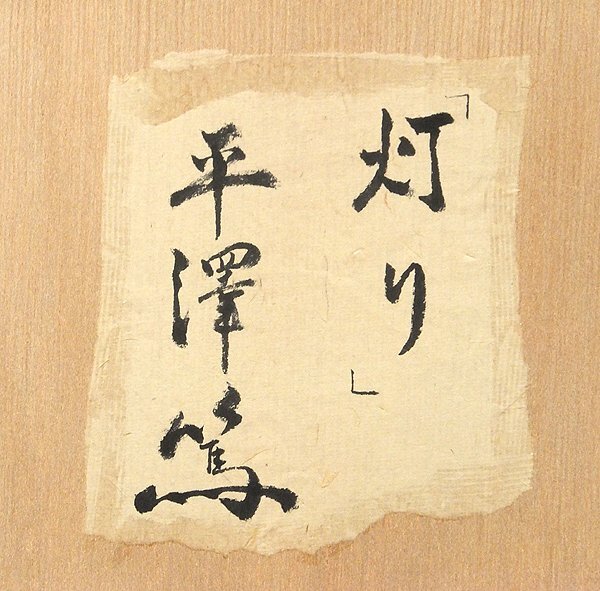 「灯り」
平澤篤